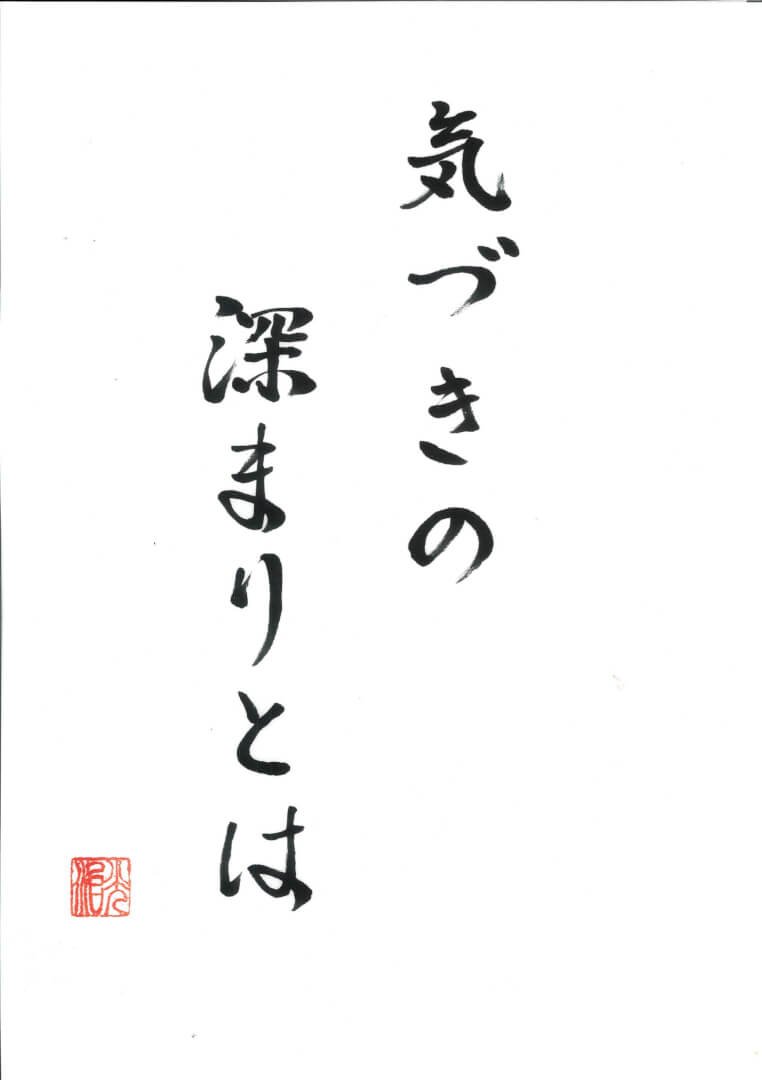 気づきの
深まりとは